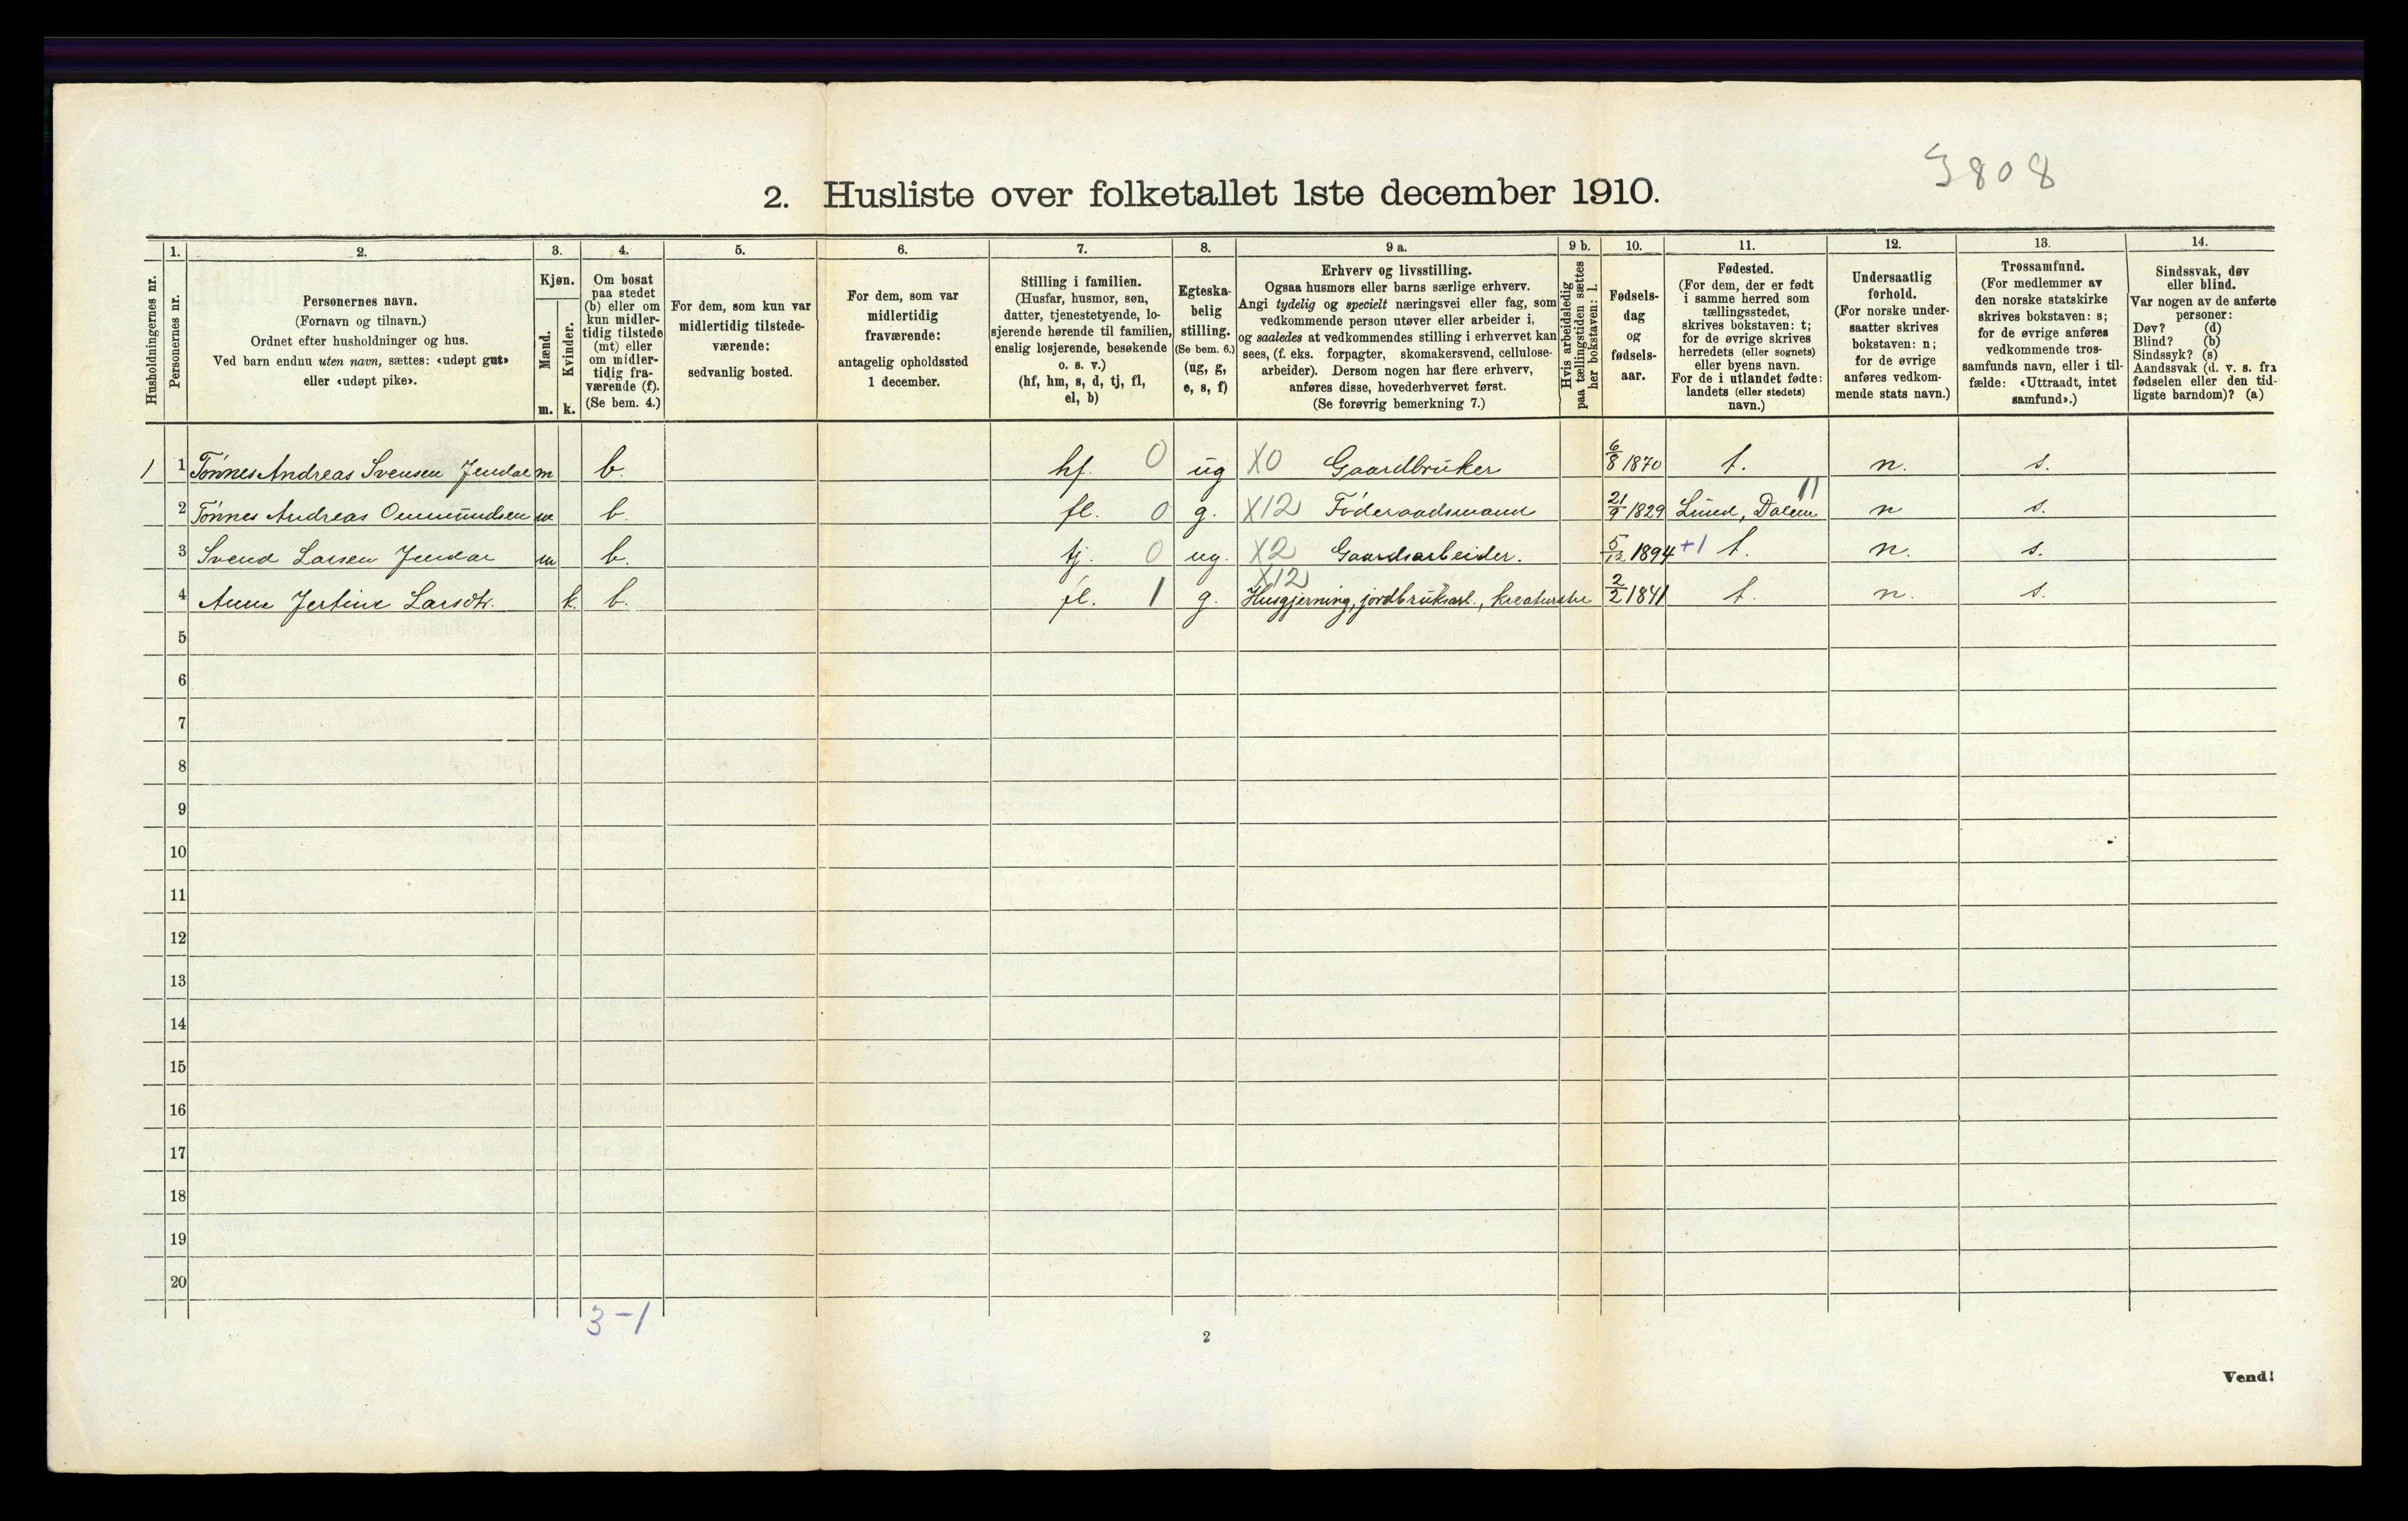 3808
2. Husliste over folketallet 1ste december 1910.
Husholdningernes nr.
1.
Personernes nr.
2.
Personernes navn.
(Fornavn og tilnavn.)
Ordnet efter husholdninger og hus.
Ved barn endnu uten navn, sættes: «udøpt gut»
eller «udøpt pike».
3.
Kjøn.
Mænd.
Kvinder.
m. k.
4.
Om bosat
paa stedet
(b) eller om
kun midler-
tidig tilstede
(mt) eller
om midler-
tidig fra-
værende (f).
(Se bem. 4.)
5.
For dem, som kun var
midlertidig tilstede-
værende:
sedvanlig bosted.
6.
For dem, som var
midlertidig
fraværende:
antagelig opholdssted
1 december.
7.
Stilling i familien.
(Husfar, husmor, søn,
datter, tjenestetyende, lo-
sjerende hørende til familien,
enslig losjerende, besøkende
o. s. v.)
(hf, hm, s, d, tj, fl,
el, b)
8.
Egteska-
belig
stilling.
(Se bem. 6.)
(ug, g,
e, s, f)
9 a.
Erhverv og livsstilling.
Ogsaa husmors eller barns særlige erhverv.
Angi tydelig og specielt næringsvei eller fag, som
vedkommende person utøver eller arbeider i,
og saaledes at vedkommendes stilling i erhvervet kan
sees, (f. eks. forpagter, skomakersvend, cellulose-
arbeider). Dersom nogen har flere erhverv,
anføres disse, hovederhvervet først.
(Se forøvrig bemerkning 7.)
9 b.
Hvis arbeidsledig
paa tællingstiden sættes
her bokstaven: l.
10.
Fødsels-
dag
og
fødsels-
aar.
11.
Fødested.
(For dem, der er født
i samme herred som
tællingsstedet,
skrives bokstaven: t;
for de øvrige skrives
herredets (eller sognets)
eller byens navn.
For de i utlandet fødte:
landets (eller stedets)
navn.)
12.
Undersaatlig
forhold.
(For norske under-
saatter skrives
bokstaven: n;
for de øvrige
anføres vedkom-
mende stats navn.)
13.
Trossamfund.
(For medlemmer av
den norske statskirke
skrives bokstaven: s;
for de øvrige anføres
vedkommende tros-
samfunds navn, eller i til-
fælde: «Uttraadt, intet
samfund».)
14.
Sindssvak, døv
eller blind.
Var nogen av de anførte
personer:
Døv? (d)
Blind? (b)
Sindssyk? (s)
Aandssvak (d. v. s. fra
fødselen eller den tid-
ligste barndom)? (a)
1 1 Tönnes Andreas Svensen Jendal m b. hf. 0 ug X0 Gaardbruker 6/8 1870 t. n. s.
2 Tönnes Andreas Ommundsen m b. fl. 0 g. X12 Föderaadsmand 21/9 1829 Lund, Dalem 11 n s.
3 Svend Larsen Jendal m b. tj. 0 ug. X2 Gaardsarbeider. 5/12 1894 +1 t. n. s.
4 Anne Jertine Larsdtr. k. b. fl. 1 g. X12 Husgjerning, jordbruksarb., kreaturstel 2/2 1841 t. n. s.
5
6
7
8
9
10
11
12
13
14
15
16
17
18
19
20
3-1
2
Vend!